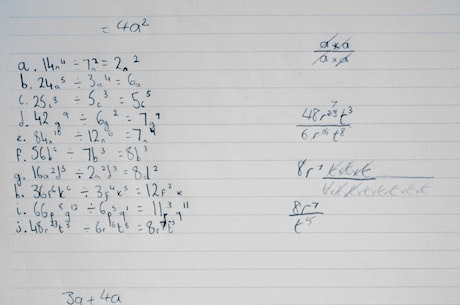 = 4a²
a. 14n⁴ ÷ 7n² = 2n²
b. 24a⁵ ÷ 3a⁴ = 6a
c. 25c⁸ ÷ 5c³ = 5c⁵
d. 42g⁹ ÷ 6g² = 7g⁷
e. 84n¹⁰ ÷ 12n⁶ = 7n⁴
f. 56l ÷ 7b³ = 8l
g. 16a²l⁵ ÷ 2a²l³ = 8l²
h. 36r⁶k⁶ ÷ 3r⁴k⁵ = 12r²k
i. 66p⁸g¹² ÷ 6p⁵g¹ = 11p³g¹¹
j. 48r²³t³ ÷ 6r¹⁶t⁸ = 8r⁷t⁵
3a + 4a
a x a
a x a
48r²³t³
6r¹⁶t⁸
8r⁷
8r⁷
t⁵